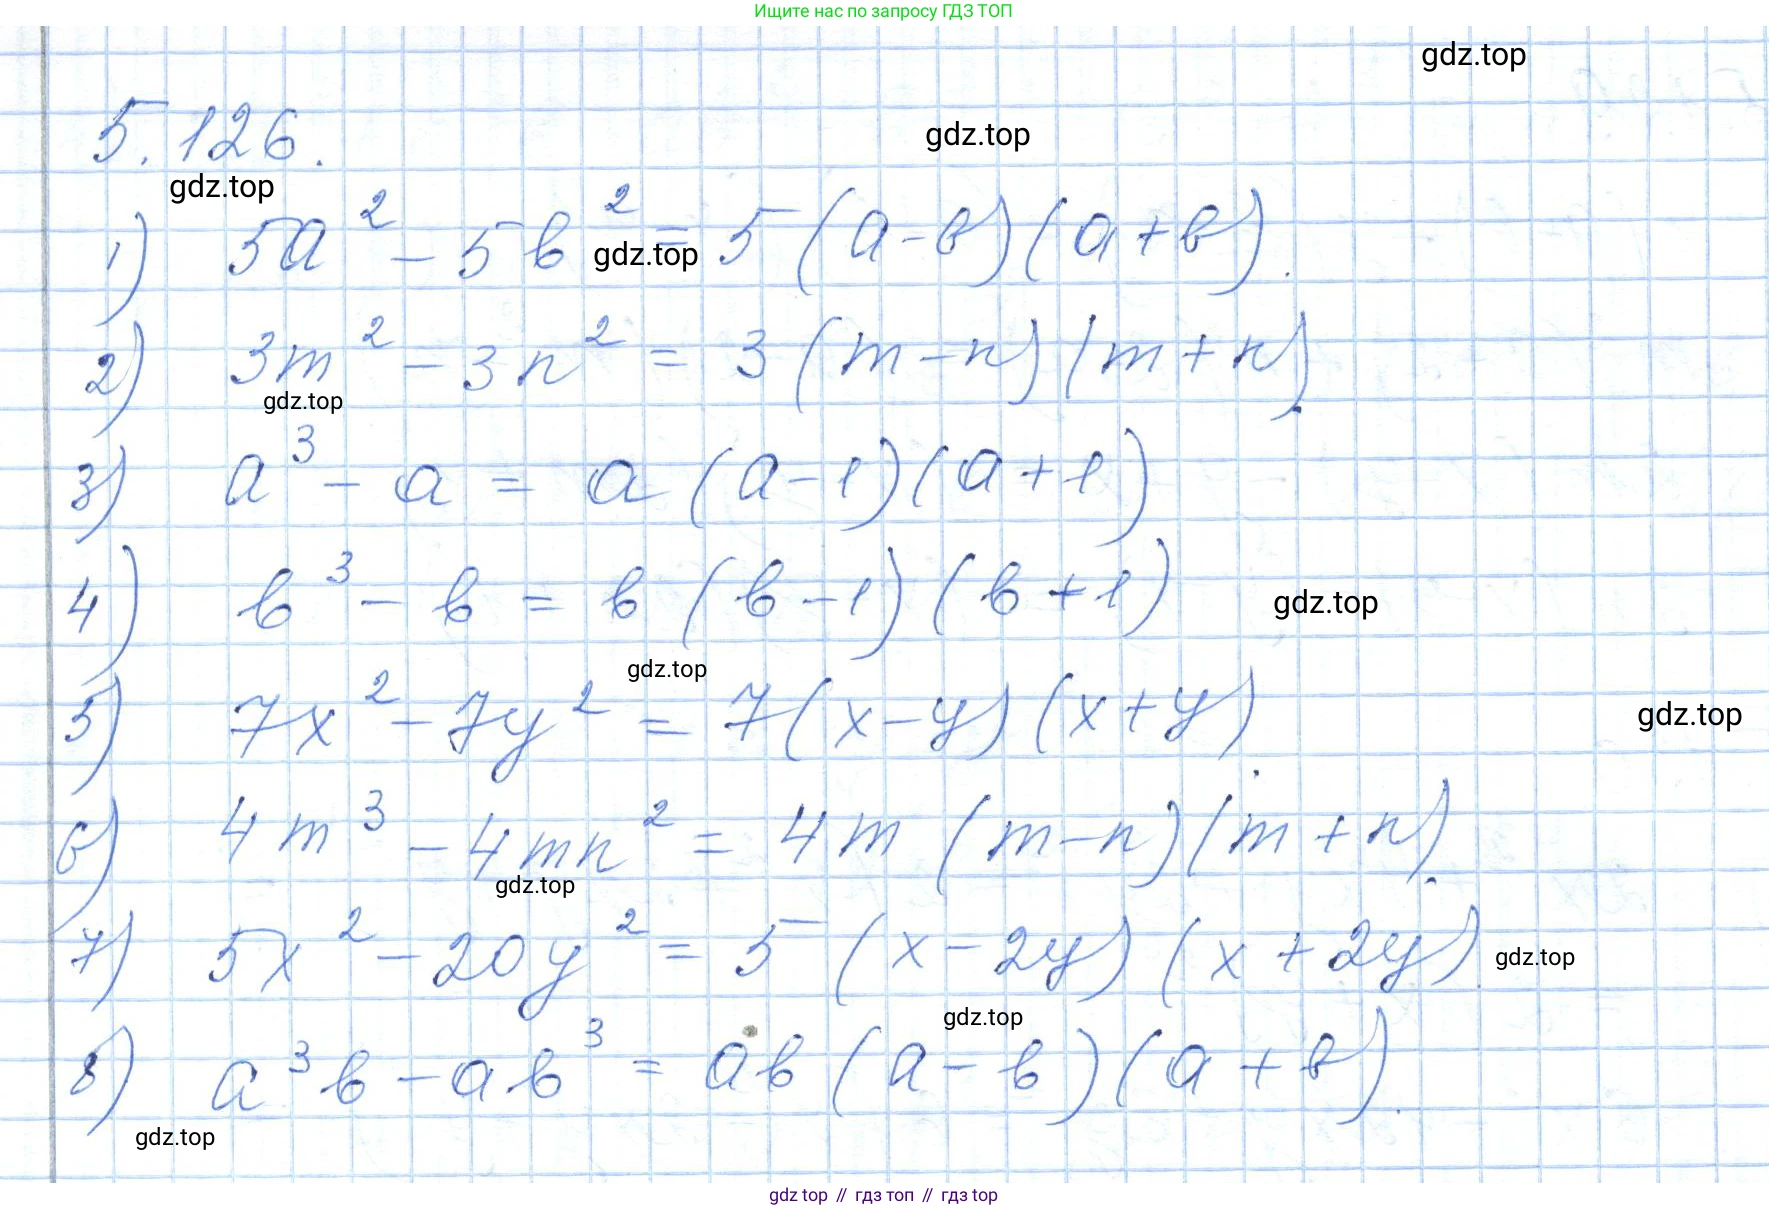 Ищите нас по запросу ГДЗ ТОП
gdz.top
5.126.
gdz.top
gdz.top
1) 5a² - 5b² = 5(a-b)(a+b).
gdz.top
2) 3m² - 3n² = 3(m-n)(m+n).
gdz.top
3) a³ - a = a(a-1)(a+1)
4) b³ - b = b(b-1)(b+1)
gdz.top
gdz.top
5) 7x² - 7y² = 7(x-y)(x+y).
gdz.top
6) 4m³ - 4mn² = 4m(m-n)(m+n).
gdz.top
7) 5x² - 20y² = 5(x-2y)(x+2y).
gdz.top
gdz.top
8) a³b - ab³ = ab(a-b)(a+b).
gdz.top
gdz top // гдз топ // gdz top